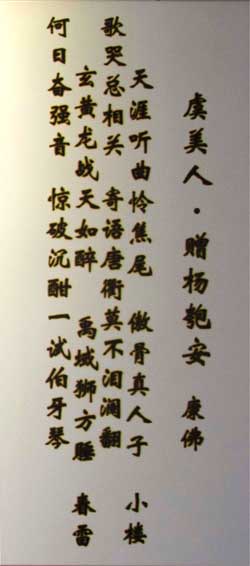 虞美人·赠杨匏安 康佛
天涯听曲怜焦尾 傲骨真人子 小楼
歌哭总相关 寄语唐衢莫不泪澜翻
玄黄龙战天如醉 禹域狮方睡 春雷
何日奋强音 惊破沉酣一试伯牙琴